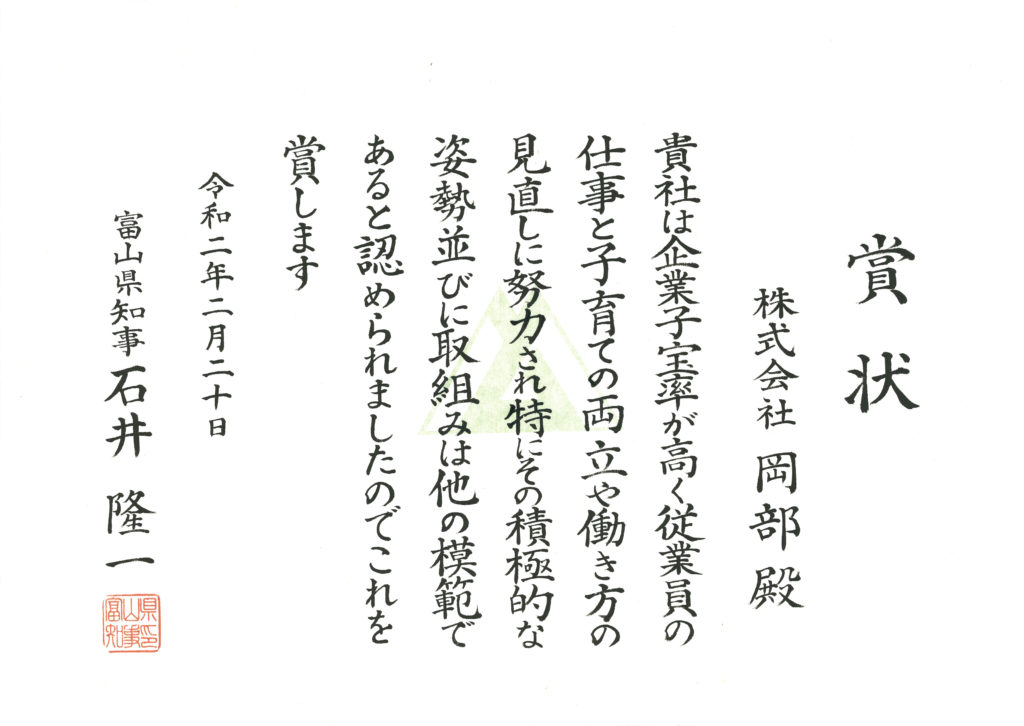 賞状
株式会社 岡部 殿
貴社は企業子宝率が高く従業員の
仕事と子育ての両立や働き方の
見直しに努力され特にその積極的な
姿勢並びに取組みは他の模範で
あると認められましたのでこれを
賞します
令和二年二月二十日
富山県知事 石井 隆一
富山県知事印